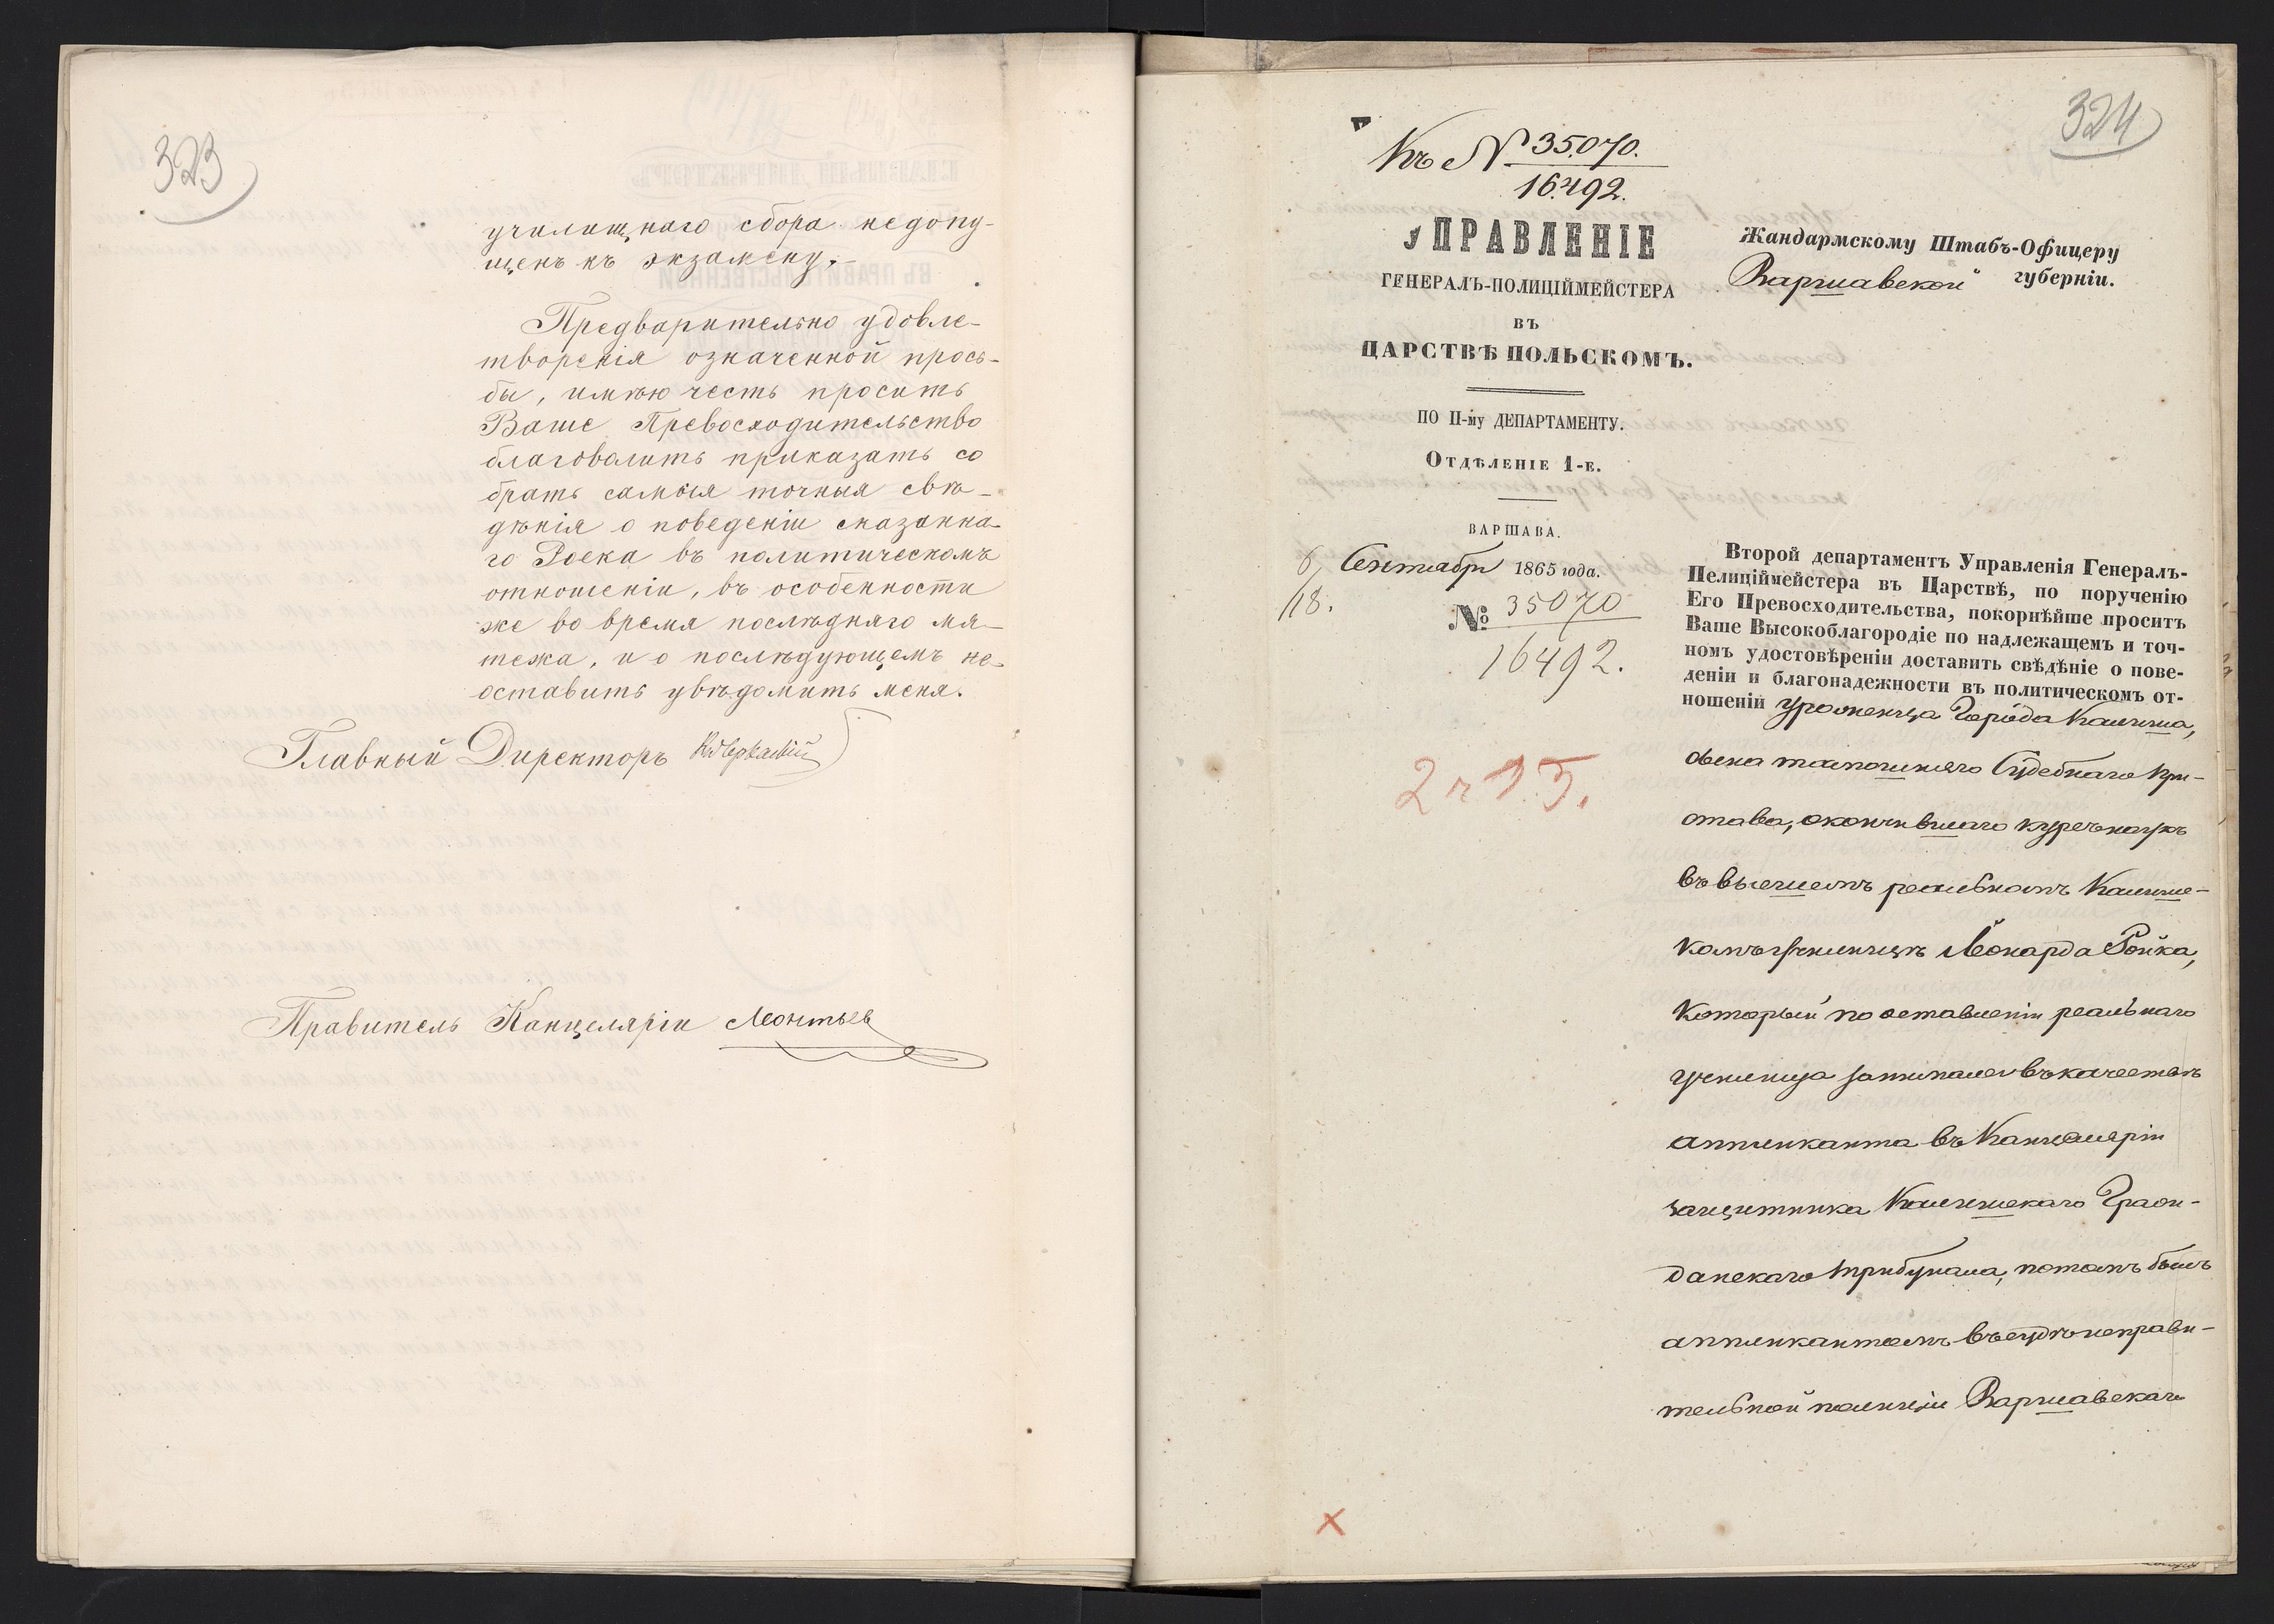 323
училищнаго сбора недопу-
щенъ къ экзамену.-
Предварительно удовле-
творенія означенной прось-
бы, имѣю честь просить
Ваше Превосходительство
благоволить приказать со
брать самыя точныя свѣ-
дѣнія о поведеніи сказанна-
го Роека въ политическомъ
отношеніи, въ особенности
же во время послѣдняго мя-
тежа, и о послѣдующемъ не-
оставить увѣдомить меня.
Главный Директоръ
Правитель Канцеляріи Леонтьев
324
Къ № 35.070.
16.492.
УПРАВЛЕНІЕ
ГЕНЕРАЛЪ-ПОЛИЦІЙМЕЙСТЕРА
ВЪ
ЦАРСТВѢ ПОЛЬСКОМЪ.
ПО II-му ДЕПАРТАМЕНТУ.
Отдѣленіе 1-е.
ВАРШАВА.
6/18. Сентября 1865 года.
№ 35070
16492.
Жандармскому Штабъ-Офицеру
Варшавской губерніи.
Второй департаментъ Управленія Генералъ-
Пелиціймейстера въ Царствѣ, по порученію
Его Превосходительства, покорнѣйше проситъ
Ваше Высокоблагородіе по надлежащемъ и точ-
номъ удостовѣреніи доставить свѣдѣніе о пове-
деніи и благонадежности въ политическомъ от-
ношеніи уроженца Города Калиша,
сына тамошняго Судебнаго При-
става, окончившаго курсъ наукъ
въ высшемъ реальномъ Калишс-
комъ училищѣ Леонарда Ройка,
который по оставленіи реальнаго
училища занимался въ качествѣ
аппликанта въ Канцеляріи
защитника Калишскаго Граж-
данскаго трибунала, потомъ былъ
аппликантомъ въ судѣ исправи-
тельной полиціи Варшавскаго